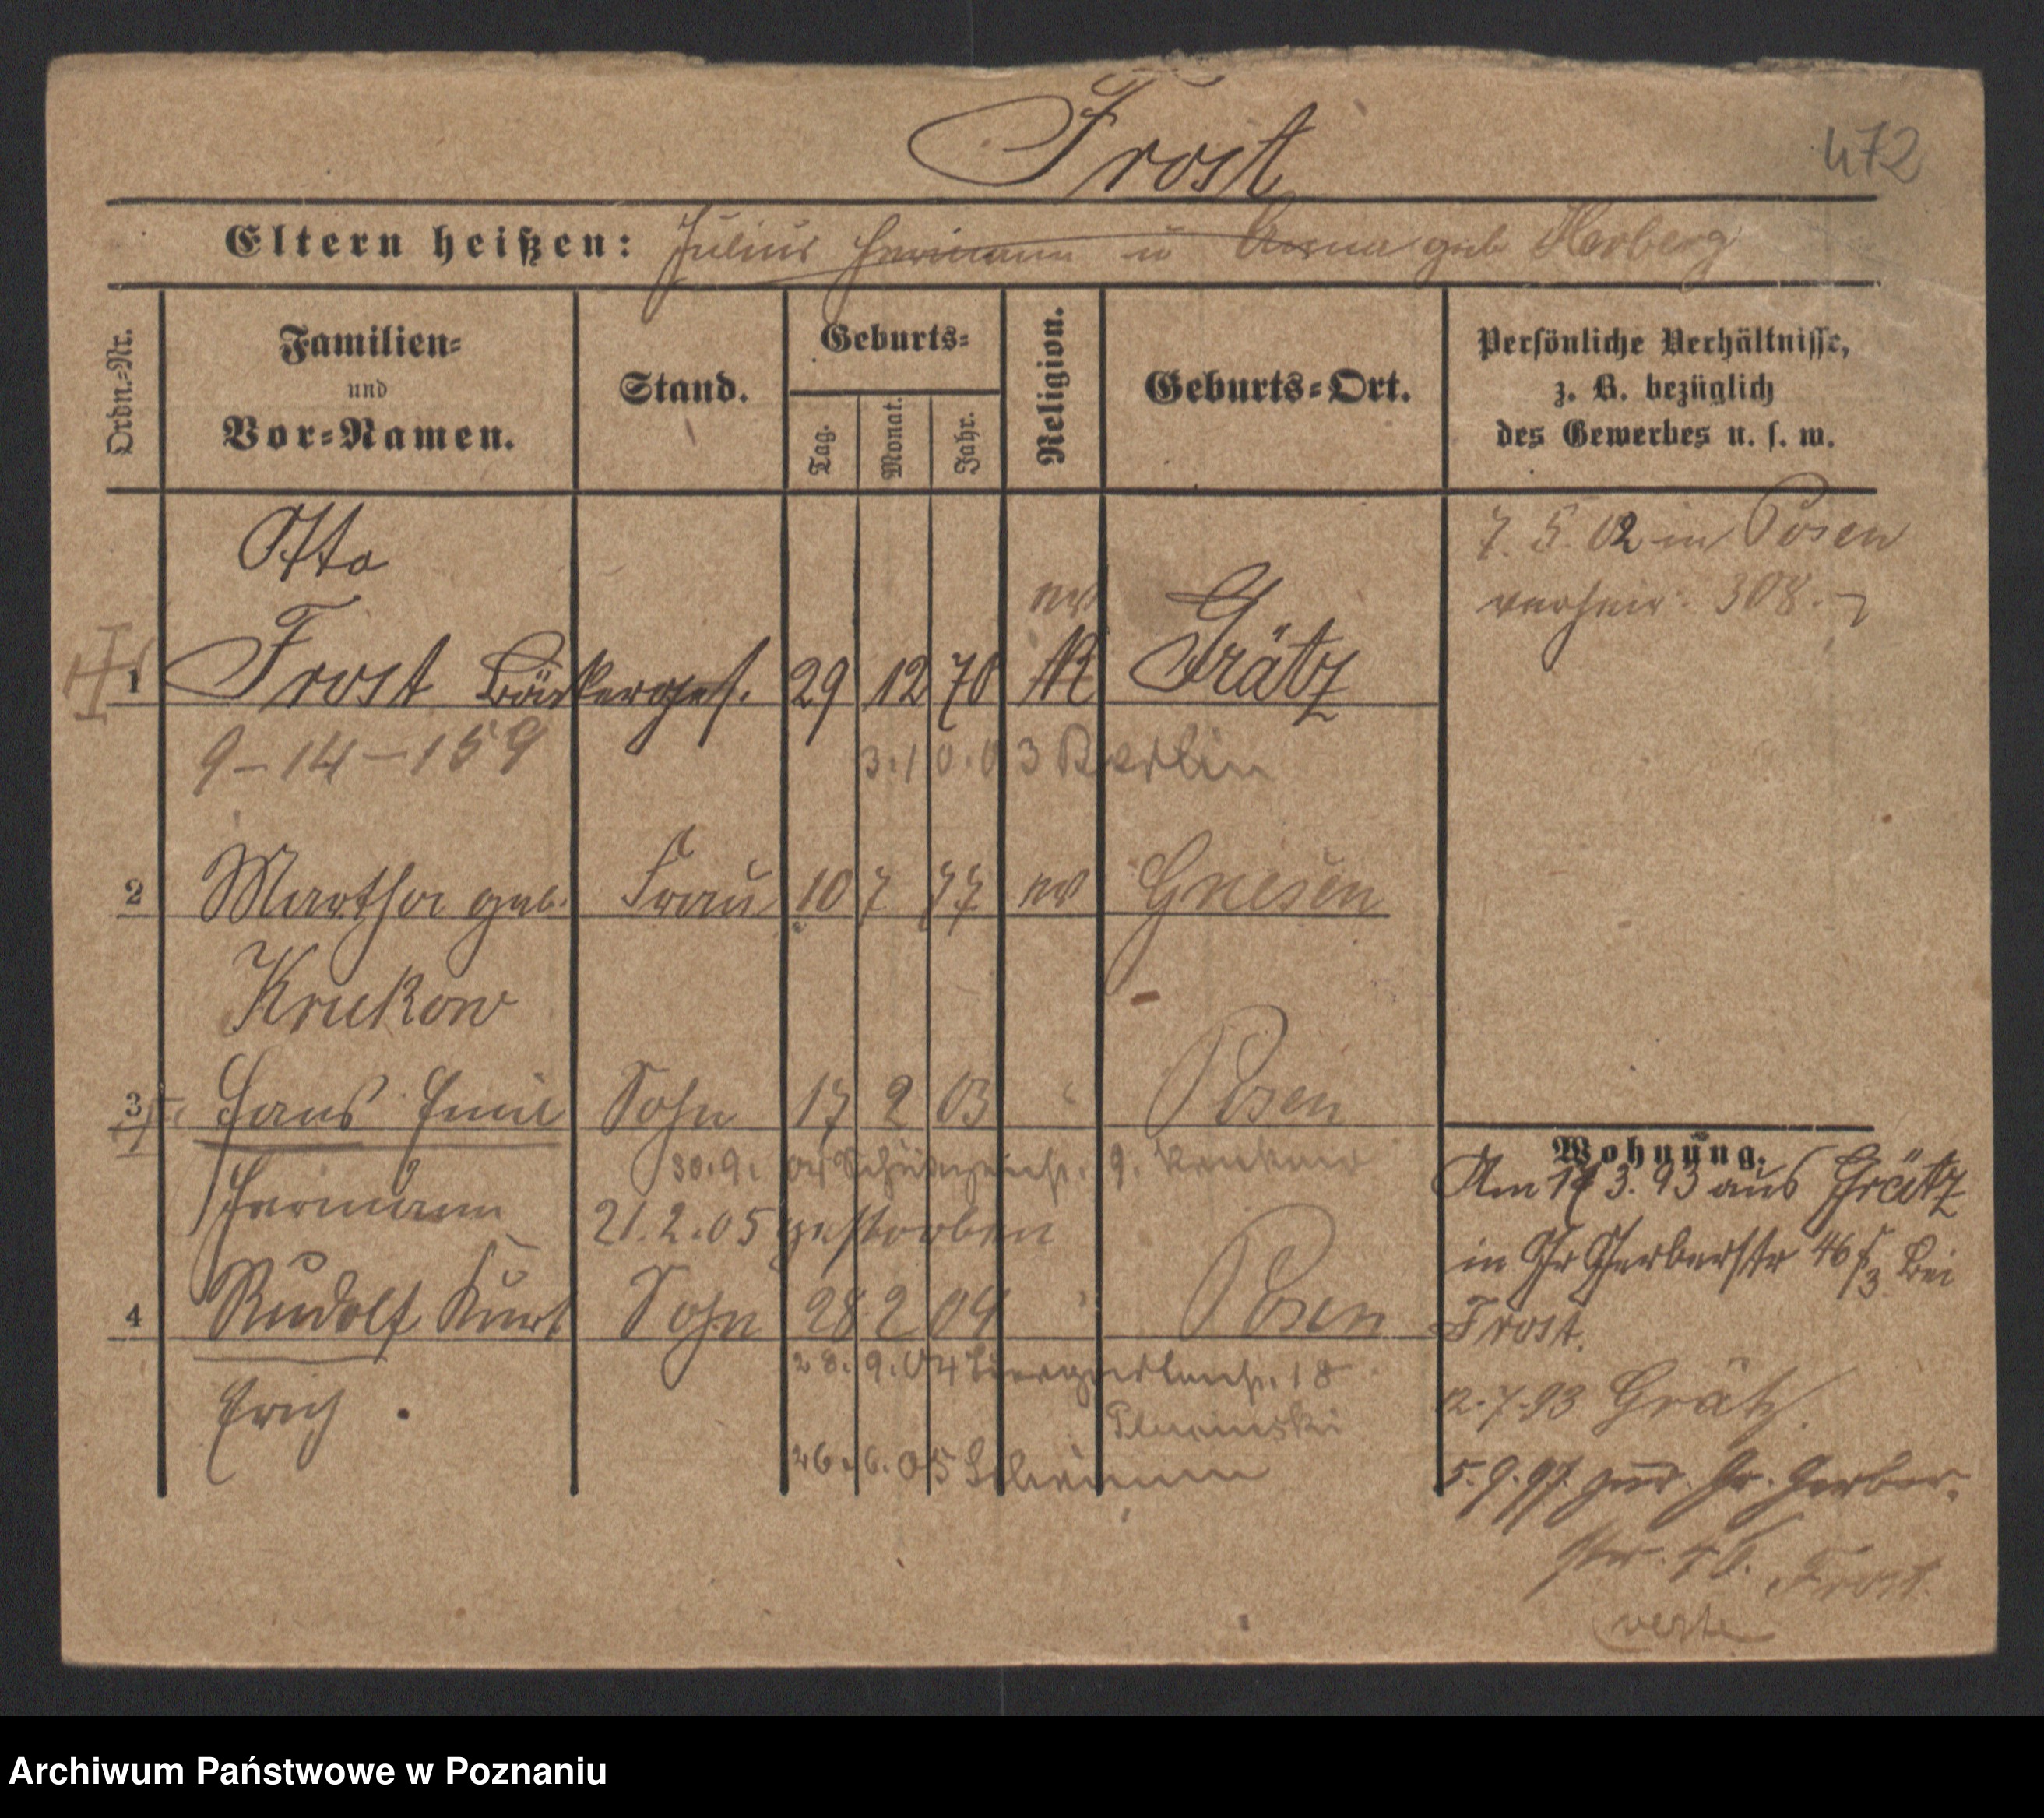 Frost
472
Eltern heißen: Julius Hermann u Anna geb Herberg
Ordn.-Nr.
Familien-
und
Vor-Namen.
Stand.
Geburts-
Tag.
Monat.
Jahr.
Religion.
Geburts-Ort.
Persönliche Verhältnisse,
z. B. bezüglich
des Gewerbes u. s. w.
Otto
7. 5. 02 in Posen
verheir. 308.
ev
1 Frost Bäckerges. 29 12 70 K Grätz
9-14-159
3.10.03 Berlin
2 Martha geb. Frau 10 7 77 ev Gnesen
Kruckow
3 Hans Emil Sohn 17 2 03 " Posen
30.9.
Hermann
21.2.05 gestorben
4 Rudolf Kurt Sohn 28 2 04 " Posen
28.9.04 18
Erich
26.6.05
Wohnung.
Am 17 3. 93 aus Grätz
in Gr Gerberstr 46 bei
Frost.
2.7.93 Grätz.
5.9.97 zur. Gr. Gerber-
str. 46. Frost.
verte
Archiwum Państwowe w Poznaniu